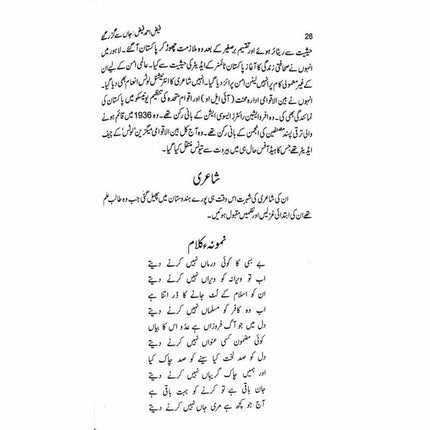 26 فیض احمد فیض: جاں سے گزر گئے
حیثیت سے ریٹائر ہوئے اور تقسیم برصغیر کے بعد وہ ملازمت چھوڑ کر پاکستان آ گئے۔ لاہور میں
انہوں نے صحافتی زندگی کا آغاز پاکستان ٹائمز کے ایڈیٹر کی حیثیت سے کیا۔ عالمی امن کے لیے ان
کے غیر معمولی کام پر انہیں لینن امن پرائز دیا گیا۔ انہیں شاعری کا انٹرنیشنل لوٹس انعام بھی دیا گیا۔
انہوں نے بین الاقوامی ادارہ محنت (آئی ایل او) اور اقوام متحدہ کی تنظیم یونیسکو میں پاکستان کی
نمائندگی بھی کی۔ وہ افروایشین رائٹرز ایسوسی ایشن کے بانی رکن تھے۔ وہ 1936 میں قائم ہونے
والی ترقی پسند مصنفین کی انجمن کے بانی رکن تھے۔ وہ آج کل بین الاقوامی میگزین لوٹس کے چیف
ایڈیٹر تھے جس کا ہیڈ آفس حال ہی میں بیروت سے تیونس منتقل کیا گیا۔
شاعری
ان کی شاعری کی شہرت اس وقت ہی پورے ہندوستان میں پھیل گئی جب وہ طالب علم
تھے ان کی ابتدائی غزلیں اور نظمیں مقبول ہوئیں۔
نمونہء کلام
بے بسی کا کوئی درماں نہیں کرنے دیتے
اب تو ویرانہ کو ویراں نہیں کرنے دیتے
ان کو اسلام کے لٹ جانے کا ڈر اتنا ہے
اب وہ کافر کو مسلماں نہیں کرنے دیتے
دل میں جو آگ فروزاں ہے عدو اس کا بیاں
کوئی مضموں کسی عنواں نہیں کرنے دیتے
دل کو صد لخت کیا سینے کو صد چاک کیا
اور ہمیں چاک گریباں نہیں کرنے دیتے
جان باقی ہے تو کرنے کو بہت باقی ہے
آج جو کچھ ہے مری جاں نہیں کرنے دیتے